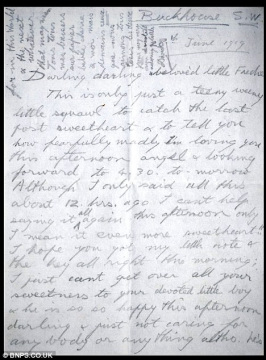 Buckhouse S.W
June 1919.
Darling darling beloved little Freda
This is only just a teeny weeny
little squawk to catch the last
post sweetheart & to tell you
how fearfully madly I'm loving you
this afternoon angel & looking
forward to 4.30. to-morrow
Although I only said all this
about 12. hrs. ago I can't help
saying it all again this afternoon only
I mean it even more sweetheart!!
I hope you got my little note &
the key all right this morning;
I just can't get over all your
sweetness to your devoted little boy
& he is so so happy this afternoon
darling & just not caring for
any body or anything altho. it's
© BNPS.CO.UK